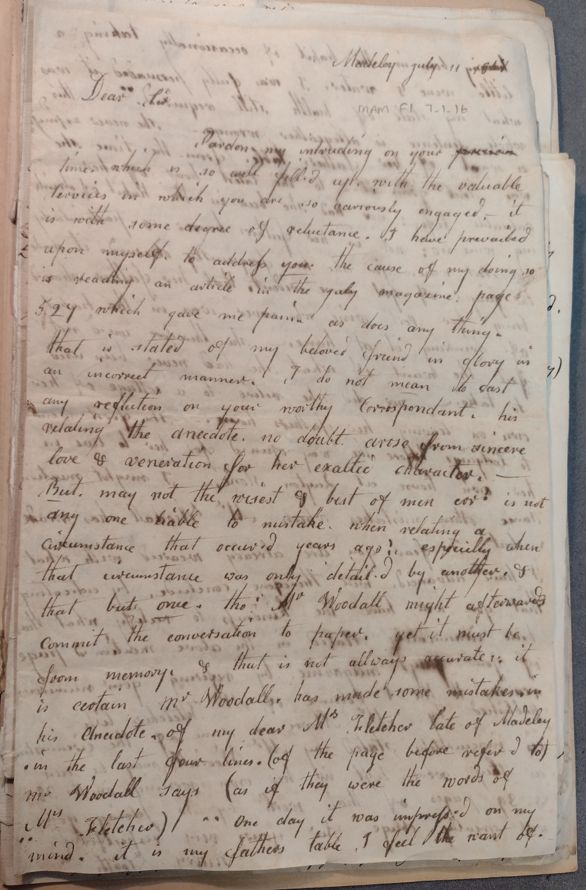 Madeley July 11
MAM Fl. 7.1.16
Dear Sir
Pardon my intruding on your
time which is so well filled up with the valuable
services in which you are so anxiously engaged, - it
is with some degree of reluctance. I have prevailed
upon myself to address you. the cause of my doing so
is reading an article in the july magazine. page
527 which gave me pain. as does any thing.
that is stated of my beloved friend in glory in
an incorrect manner. I do not mean to cast
any reflection on your worthy Correspondant. his
relating the anecdote. no doubt arose from sincere
love & veneration for her exalted character. —
But. may not the wisest & best of men err? is not
any one liable to mistake. when relating a
circumstance that occur'd years ago?. especially when
that circumstance was only detail'd by another. &
that but once. tho' Mr Woodall might afterwards
commit the conversation to paper. yet it must be
from memory. & that is not allways accurate: it
is certain Mr Woodall. has made some mistakes. in
his Anecdote. of my dear Mrs Fletcher late of Madeley
in the last four lines. (of the page before refer'd to)
Mr Woodall says (as if they were the words of
Mrs Fletcher) " one day it was impress'd on my
mind. it is my fathers table I feel the want of.